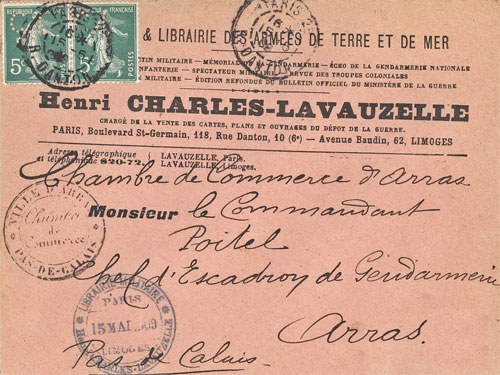 & LIBRAIRIE DES ARMÉES DE TERRE ET DE MER
ETIN MILITAIRE — MÉMORIAL DE LA GENDARMERIE — ÉCHO DE LA GENDARMERIE NATIONALE
INFANTERIE — SPECTATEUR MILITAIRE — REVUE DES TROUPES COLONIALES
MILITAIRE — ÉDITION REFONDUE DU BULLETIN OFFICIEL DU MINISTÈRE DE LA GUERRE
Henri CHARLES-LAVAUZELLE
CHARGÉ DE LA VENTE DES CARTES, PLANS ET OUVRAGES DU DÉPOT DE LA GUERRE.
PARIS, Boulevard St-Germain, 118, Rue Danton, 10 (6e) — Avenue Baudin, 62, LIMOGES
Adresses télégraphique LAVAUZELLE, Paris.
et téléphonique 820-72. LAVAUZELLE, Limoges.
Chambre de Commerce d'Arras
Monsieur le Commandant
Poitel
Chef d'Escadron de Gendarmerie
Arras
Pas de Calais
5c
POSTES
PARIS
R. DANTON
PARIS
R. DANTON
VILLE D'ARRAS
Chambre
de
Commerce
PAS-DE-CALAIS
LIBRAIRIE MILITAIRE
PARIS
15 MAI
LIMOGES
Hri CHARLES-LAVAUZELLE